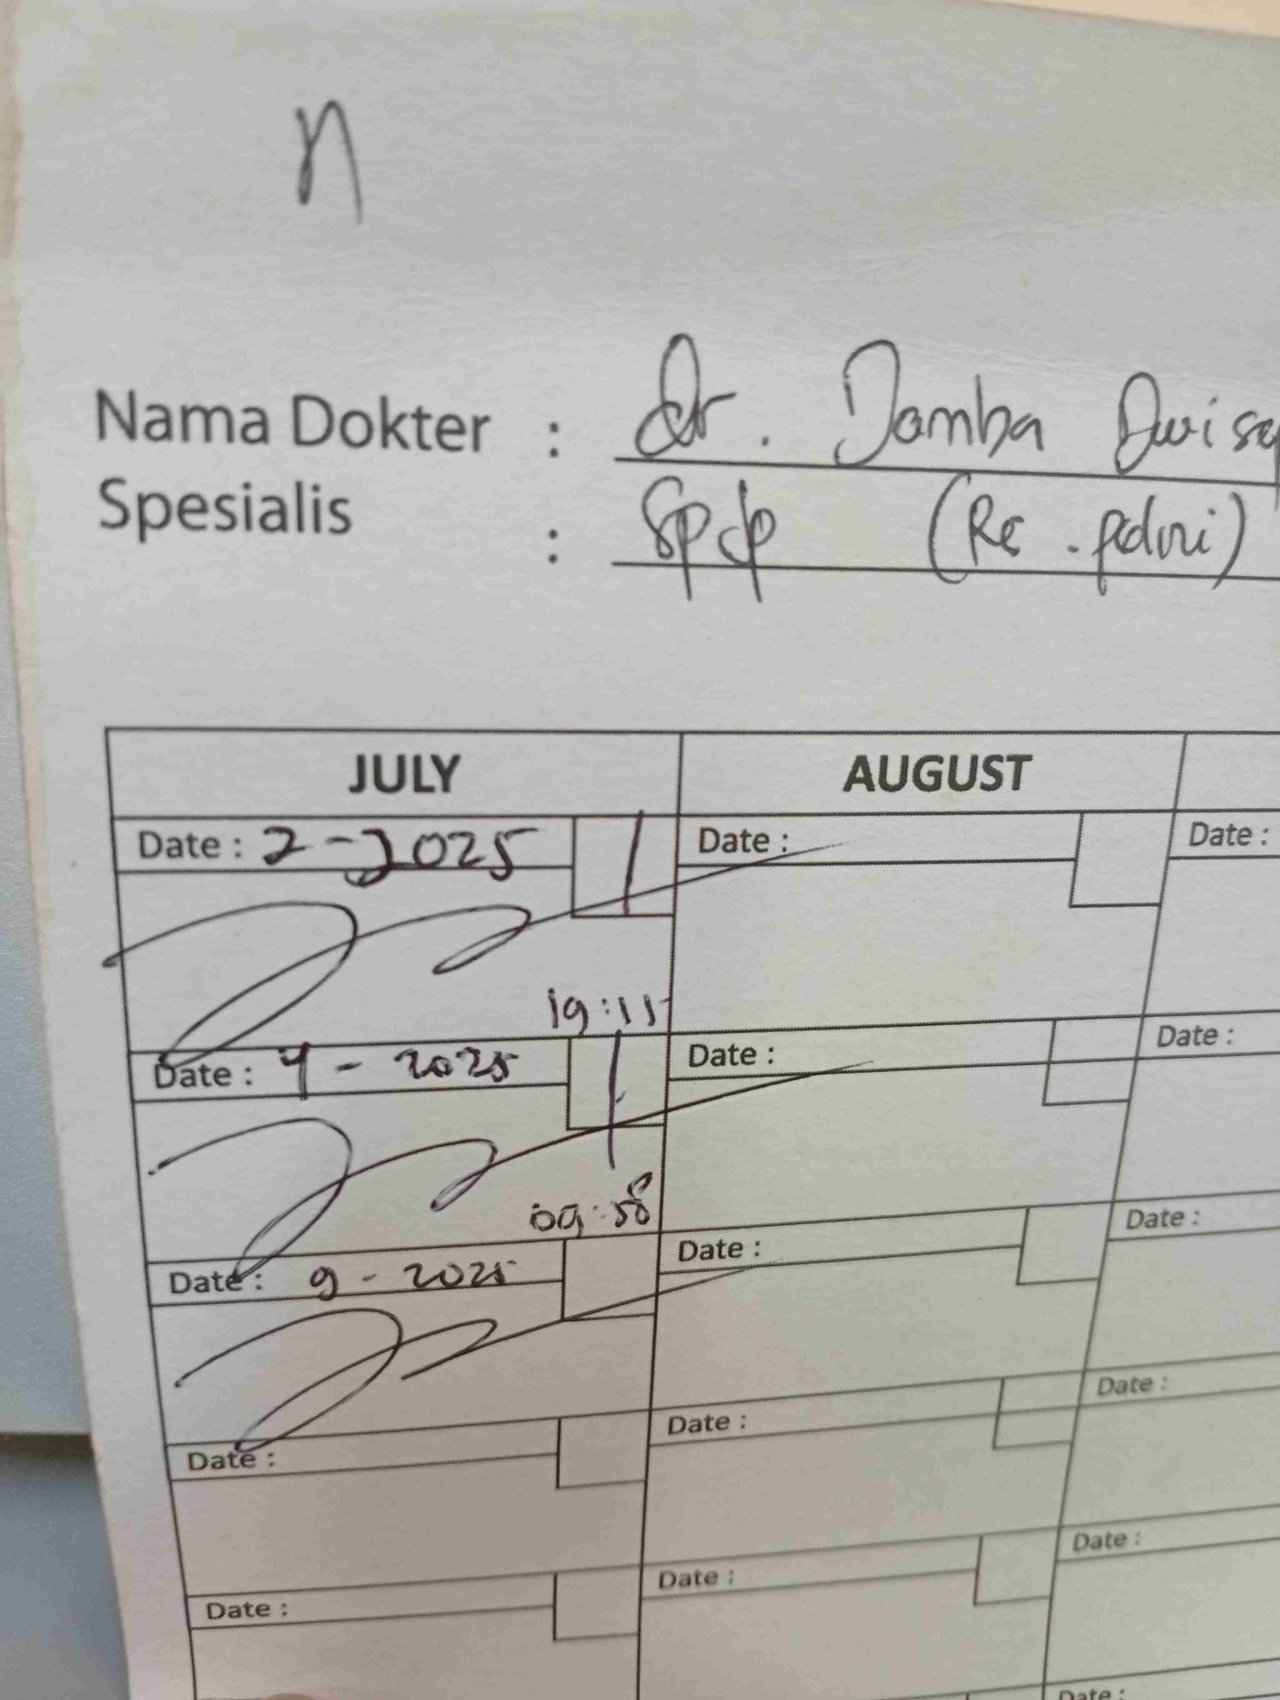 n
Nama Dokter : dr. Jamba Dwisa
Spesialis : Spdp (Re. pdvi)
JULY AUGUST
Date : 2 - 2025 1 Date : Date :
19:11
Date : 4 - 2025 1 Date : Date :
09:58
Date : 9 - 2025 Date : Date :
Date : Date : Date :
Date : Date : Date :
Date :